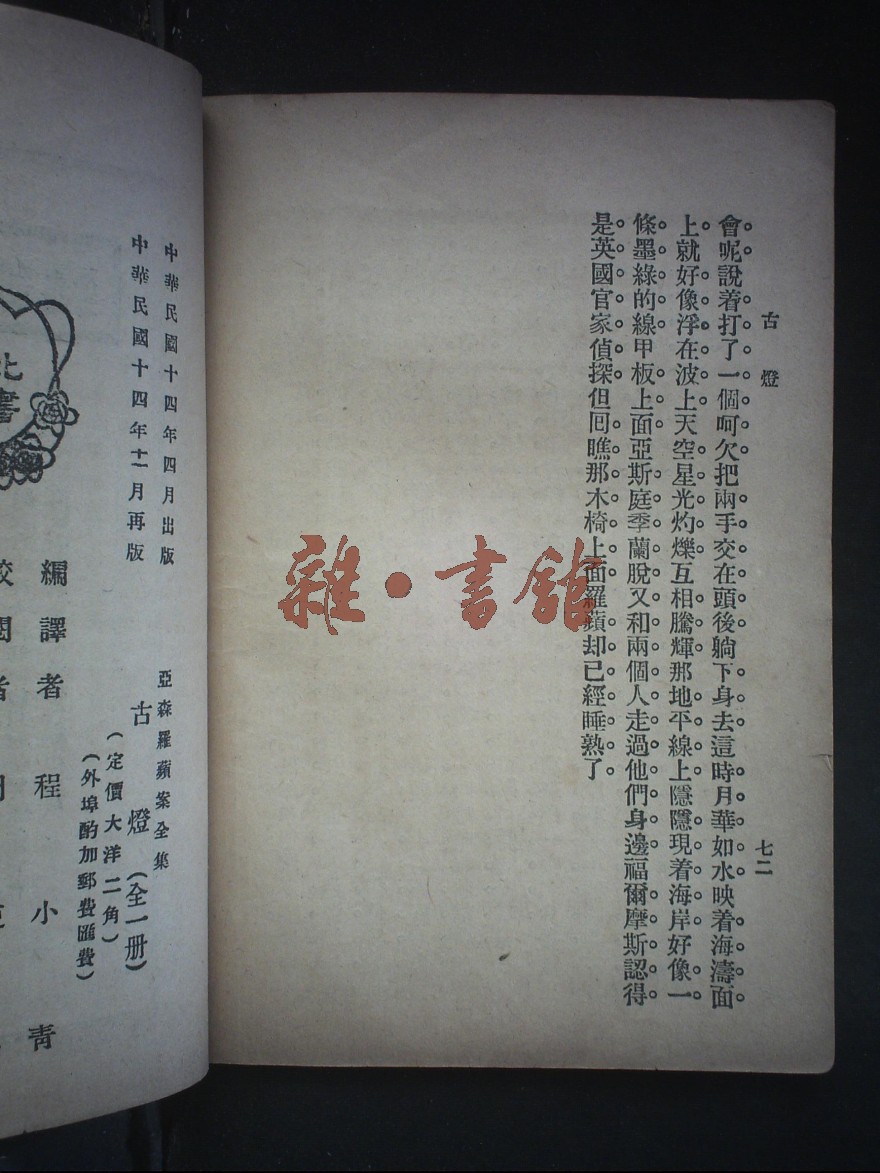 古燈
七二
會呢說着打了一個呵欠把兩手交在頭後躺下身去這時月華如水映着海濤面
上就好像浮在波上天空星光灼爍互相騰輝那地平線上隱隱現着海岸好像一
條墨綠的線甲板上面亞斯庭季蘭脫又和兩個人走過他們身邊福爾摩斯認得
是英國官家偵探但回瞧那木椅上面羅蘋却已經睡熟了
中華民國十四年四月出版
中華民國十四年十一月再版
亞森羅蘋案全集
古燈(全一册)
(定價大洋二角)
(外埠酌加郵費匯費)
編譯者 程小青
校閱者
書
雜·書館